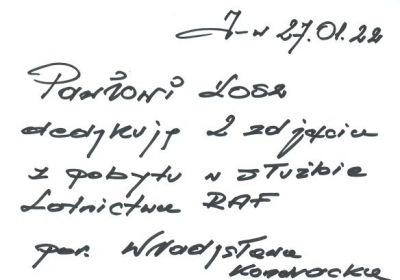 J-w 27.01.22
Państwu Łosz
dedykuję 2 zdjęcia
z pobytu w służbie
Lotnictwa RAF
por. Władysława
Konoracka